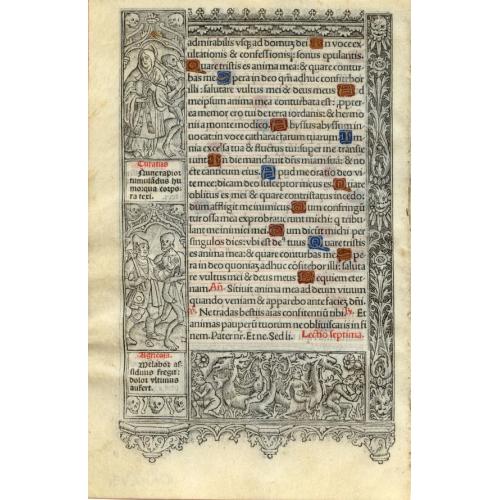 admirabilis vsq; ad domuz dei In voce ex
ultationis & confessionis: sonus epulantis.
Quare tristis es anima mea: & quare contur
bas me Spera in deo qm̃ adhuc confitebor
illi: salutare vultus mei & deus meus Ad
meipsum anima mea conturbata est: ppter
ea memor ero tui de terra iordanis: & hermo
nii a monte modico. Abyssus abyssum in
uocat: in voce catharactarum tuarum. Om
nia excelsa tua & fluctus tui: super me transie
runt In die mandauit dñs miam suã: & no
cte canticum eius. Apud me oratio deo vi
te mee: dicam deo susceptor meus es Quare
oblitus es mei & quare contristatus incedo:
dum affligit me inimicus Dum confringũ
tur ossa mea exprobrauerunt michi: q tribu
lant me inimici mei. Dum dicũt michi per
singulos dies: vbi est de9 tuus Quare tristis
es anima mea: & quare conturbas me Spe
ra in deo quoniaz adhuc cõfitebor illi: saluta
re vultus mei & deus meus Requiem eter
nam. Añ. Sitiuit anima mea ad deum viuum
quando veniam & apparebo ante faciez dñi.
V. Ne tradas bestiis aĩas confitentiũ tibi R. Et
animas pauperũ tuorum ne obliuiscaris in fi
nem. Pater nr̃. Et ne. Sed li. Lectio septima.
Curatus
Nunc rapior
tumulãdus hu
moqua corpo
ra texi.
Agricola.
Me labor as
siduus fregit:
dolor vltimus
aufert.